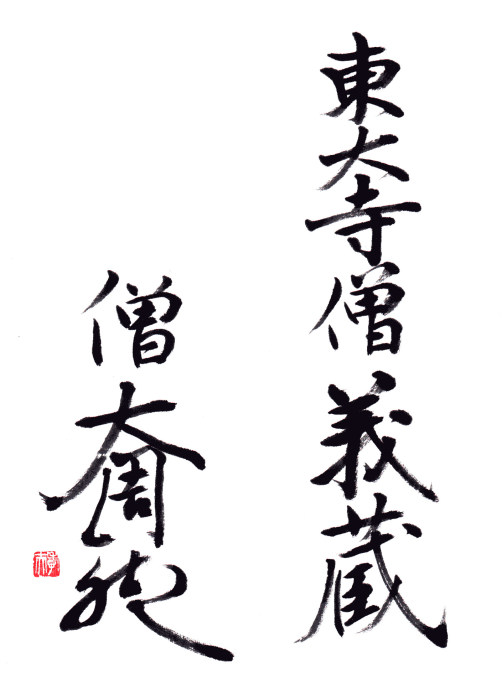 東大寺僧義蔵
僧奝然